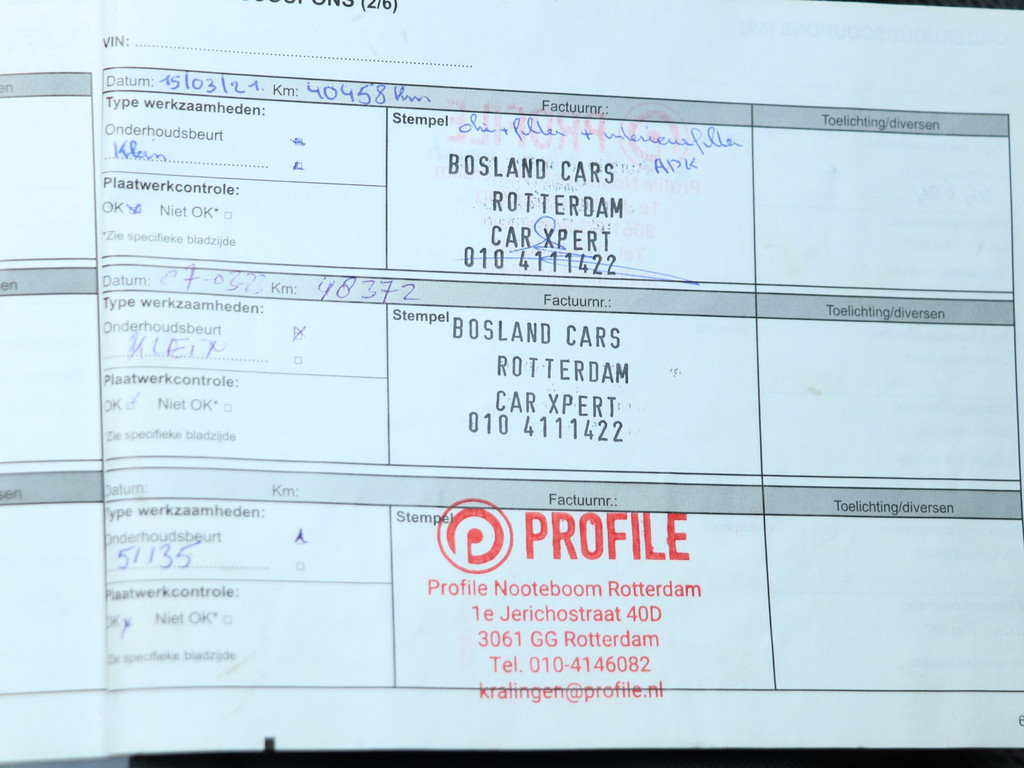 COUPONS (2/6)
VIN:
en
Datum: 15/03/21. Km: 40458 km Factuurnr.:
Type werkzaamheden:
Stempel olie + filter + interieurfilter
Toelichting/diversen
Onderhoudsbeurt
Klein
APK
BOSLAND CARS
ROTTERDAM
CAR XPERT
010 4111422
Plaatwerkcontrole:
OK Niet OK*
*Zie specifieke bladzijde
en
Datum: Km: 48372 Factuurnr.:
Type werkzaamheden:
Stempel
Toelichting/diversen
Onderhoudsbeurt
KLEIN
BOSLAND CARS
ROTTERDAM
CAR XPERT
010 4111422
Plaatwerkcontrole:
OK Niet OK*
*Zie specifieke bladzijde
sen
Datum: Km: Factuurnr.:
Type werkzaamheden:
Stempel
Toelichting/diversen
Onderhoudsbeurt
51135
PROFILE
Profile Nooteboom Rotterdam
1e Jerichostraat 40D
3061 GG Rotterdam
Tel. 010-4146082
kralingen@profile.nl
Plaatwerkcontrole:
OK Niet OK*
*Zie specifieke bladzijde
6